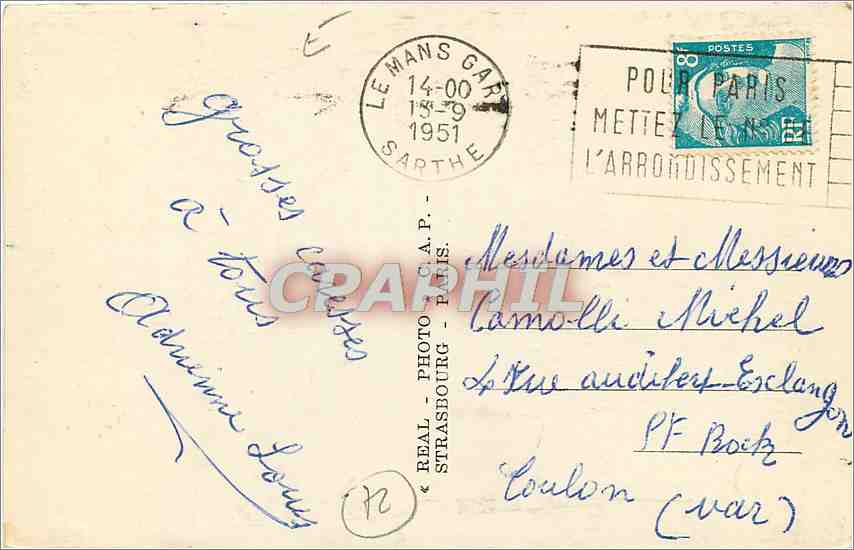 LE MANS GARE
14-00
15-9
1951
SARTHE
POSTES
8F
RF
POUR PARIS
METTEZ LE N° DE
L'ARRONDISSEMENT
grosses caresses
à tous
Adrienne
« REAL - PHOTO » C. A. P. -
STRASBOURG - PARIS.
CPARPHIL
Mesdames et Messieurs
Camolli Michel
4 Rue auditeur Esclangon
Toulon (Var)
72